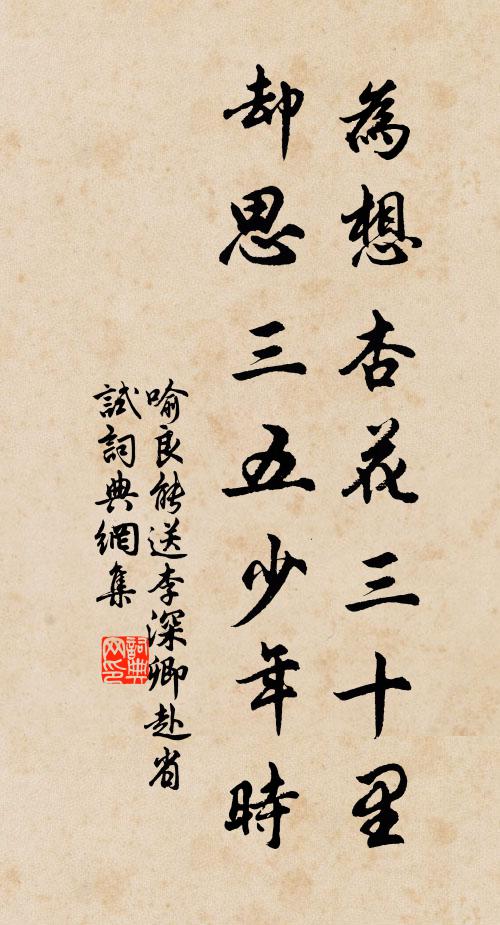 為想杏花三十里
却思三五少年時
喻良能送李深卿赴省
試詞典網集
詞典
网印